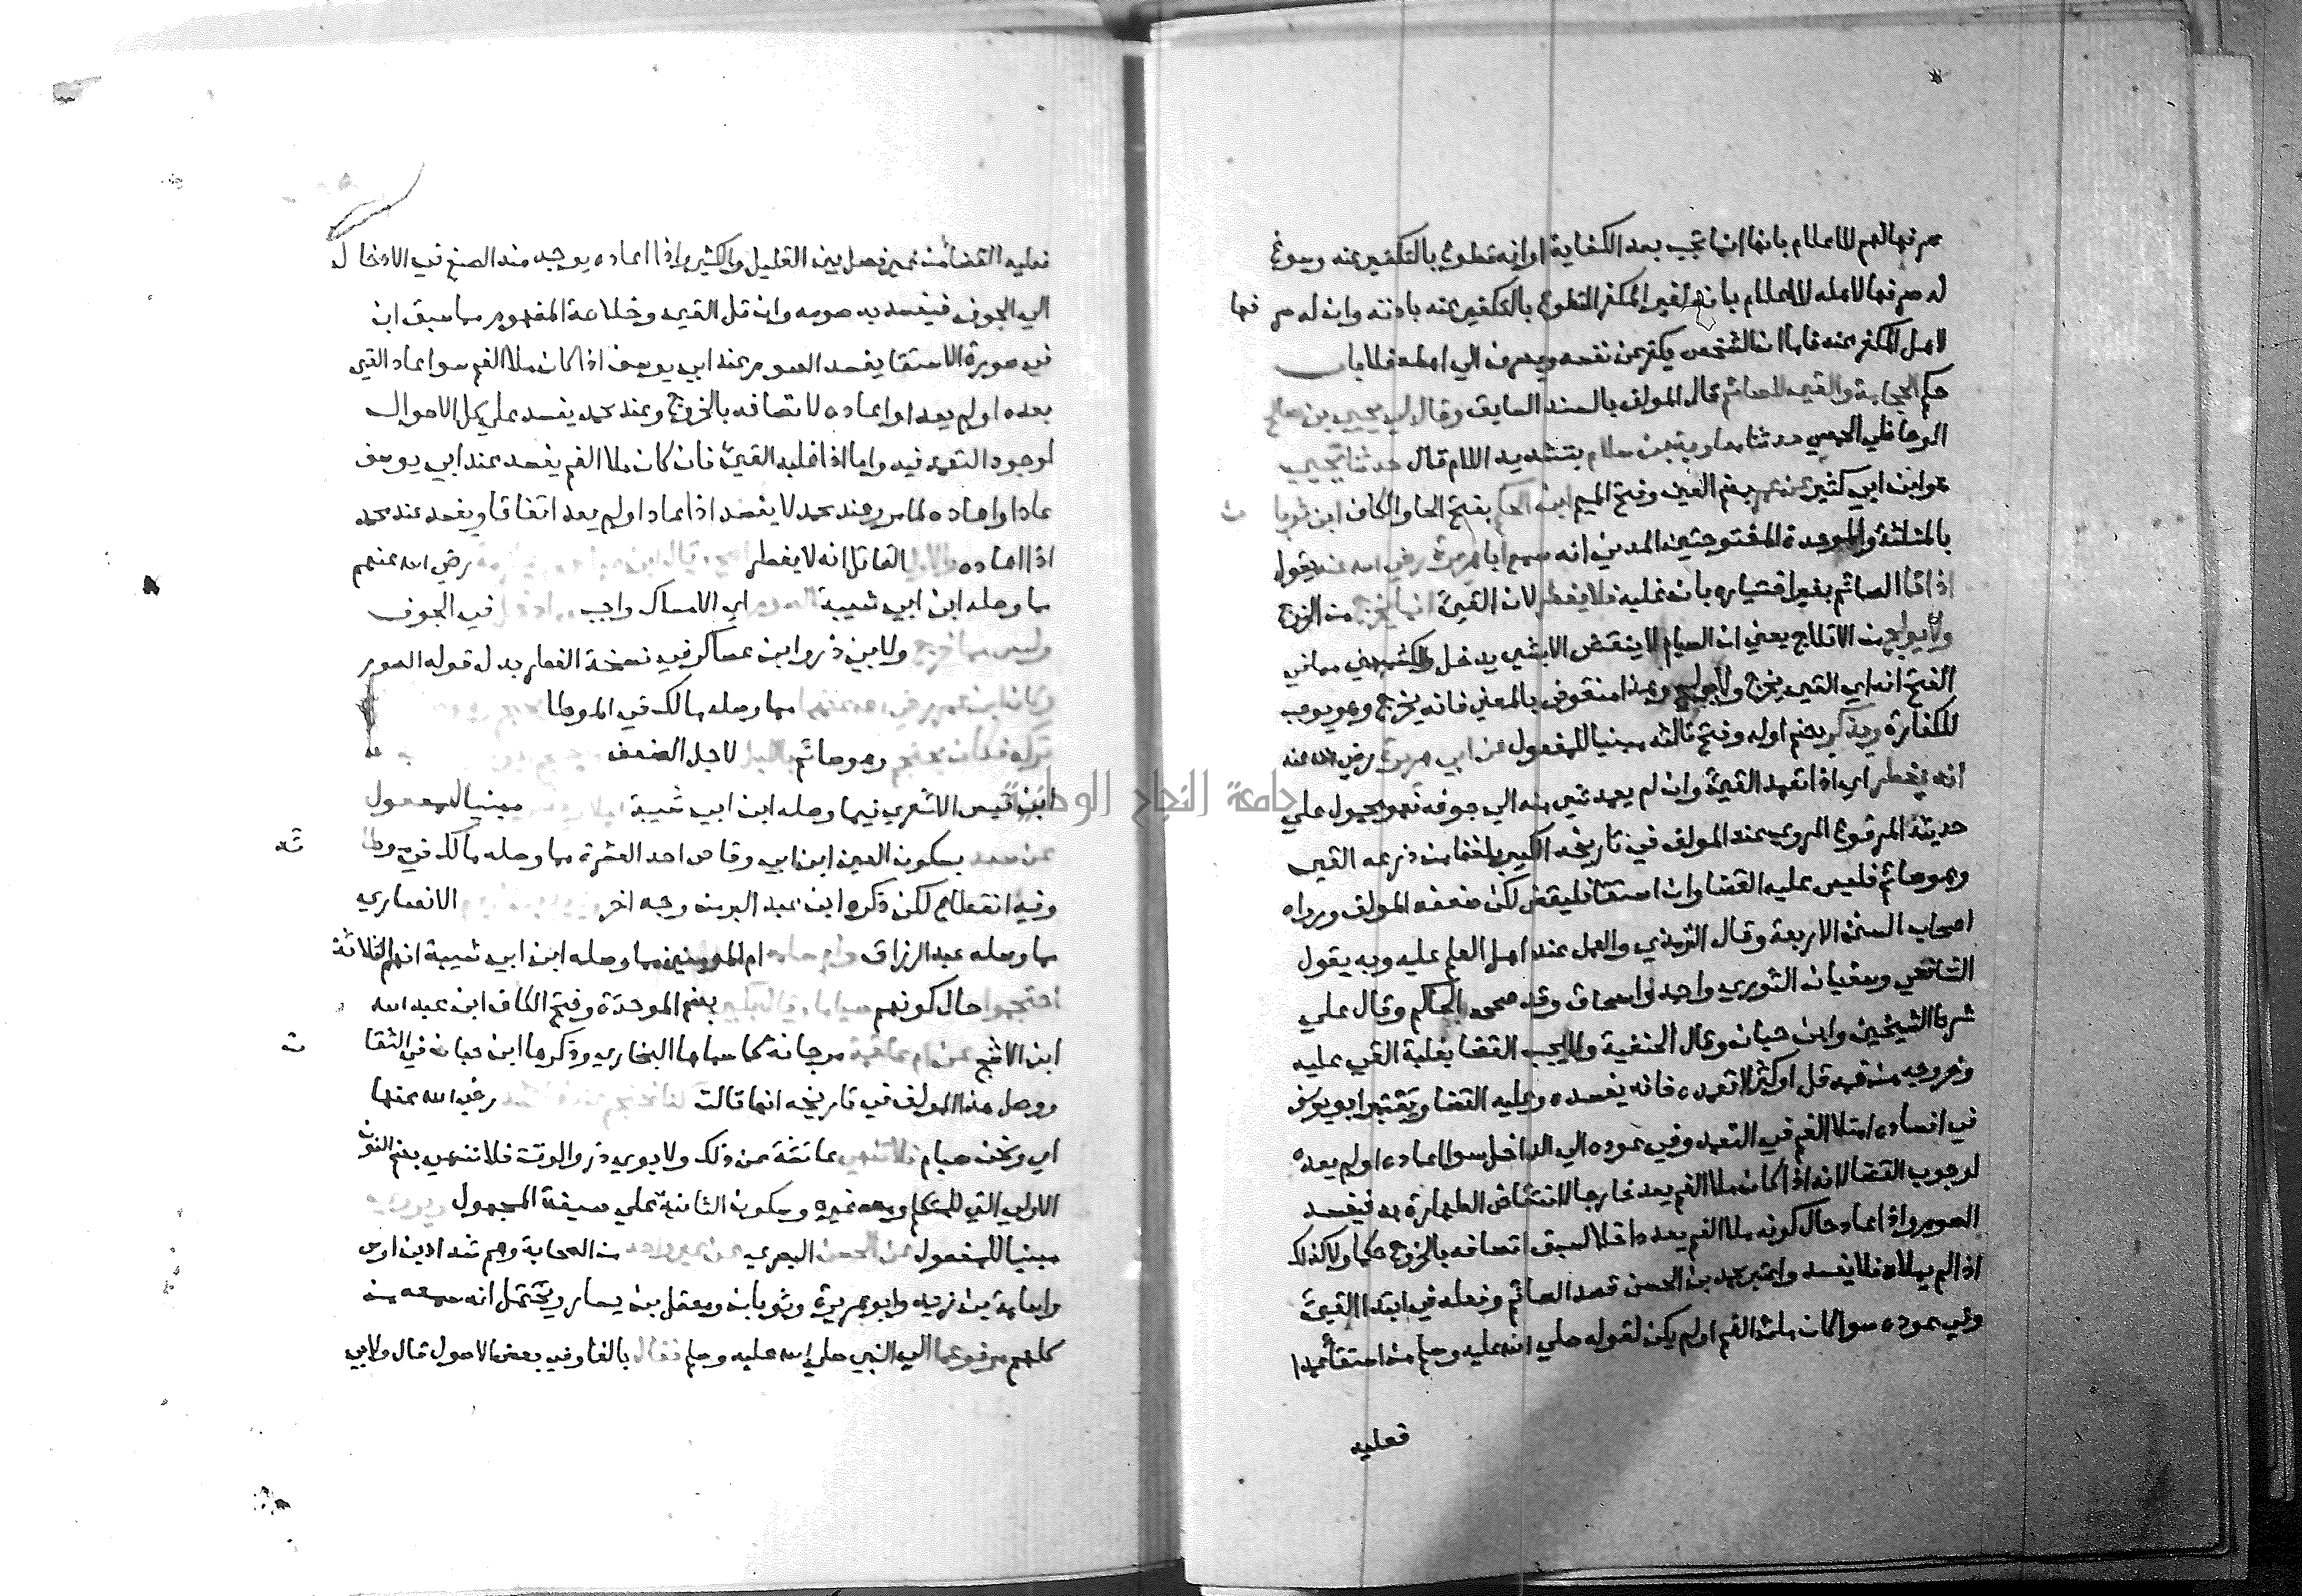 صرفها لهم للاعلام بانها انما تجب بعد الكفاية او انه تطوع بالتكفير عنه وسوغ
له صرفها لاهله للاعلام بان لغير المكفر التطوع بالتكفير عنه باذنه وان له صرفها
لاهل المكفر عنه فاما ان الشخص يكفر عن نفسه ويصرف الي اهله فلا باب
حكم الحجامة والقي للصائم قال المولف بالسند السابق وقال لي يحيي بن صالح
الوحاظي الحمصي حدثنا معاوية بن سلام بتشديد اللام قال حدثنا يحيي
هو ابن ابي كثير عن عمر بضم العين وفتح الميم ابن الحكم بفتح الحا والكاف ابن ثوبان
بالمثلثة والموحدة المفتوحتين المدني انه سمع ابا هريرة رضي الله عنه يقول
اذا قا الصائم بغير اختياره بان غلبه فلا يفطر لان القيء انما يخرج من الخروج
ولا يولج من الايلاج يعني ان الصيام لا ينقض الا بشي يدخل وللكشميهني مما في
الفتح انه اي القي يخرج ولا يولج وهذا منقوض بالمعني فانه يخرج وهو يوجب
للكفارة ويذكر بضم اوله وفتح ثالثه مبنيا للمفعول عن ابي هريرة رضي الله عنه
انه يفطر اي اذا تعمد القيء وان لم يعد شي منه الي جوفه فهو محمول علي
حديثه المرفوع المروي عند المولف في تاريخه الكبير بلفظ من ذرعه القي
وهو صائم فليس عليه القضا وان استقا فليقض لكن ضعفه المولف ورواه
اصحاب السنن الاربعة وقال الترمذي والعمل عند اهل العلم عليه وبه يقول
الشافعي وسفيان الثوري واحمد واسحاق وقد صححه الحاكم وقال علي
شرط الشيخين وابن حبان وقال الحنفية ولا يجب القضا بغلبة القي عليه
وخروجه من فمه قل او كثر لا تعمده فانه يفسده وعليه القضا ويعتبر ابو يوسف
في افساده امتلا الفم في التعمد وفي عوده الي الداخل سوا اعاده او لم يعده
لوجوب القضا لانه اذا كان ملا الفم يعد خارجا لانتقاض الطهارة به فيفسد
الصوم واذا عاد حال كونه ملا الفم يعد داخلا لسبق اتصافه بالخروج حكما ولا كذلك
اذا لم يملاه فلا يفسد واعتبر محمد بن الحسن قصد الصائم وفعله في ابتدا القيء
وفي عوده سوا كان ملء الفم او لم يكن لقوله صلي الله عليه وسلم من استقا عمدا
فعليه
فعليه القضا من غير فصل بين القليل والكثير واذا اعاده يوجد منه الصنع في الادخال
الي الجوف فيفسد به صومه وان قل القي وخلاصة المفهوم مما سبق ان
في صورة الاستقا يفسد الصوم عند ابي يوسف اذا كان ملا الفم سوا عاد القي
بعده او لم يعد او اعاده لاتصافه بالخروج وعند محمد يفسد علي كل الاحوال
لوجود التعمد فيه واما اذا غلبه القيء فان كان ملا الفم يفسد عند ابي يوسف
عاد او اعاده لما مر وعند محمد لا يفسد اذا عاد او لم يعد اتفاقا ويفسد عند محمد
اذا اعاده والاول القائل انه لا يفطر اصح وقال ابن عباس وعكرمة رضي الله عنهم
مما وصله ابن ابي شيبة الصوم اي الامساك واجب مما دخل في الجوف
وليس مما خرج ولابي ذر وابن عساكر في نسخة الفطر بدل قوله الصوم
وكان ابن عمر رضي الله عنهما مما وصله مالك في الموطا
تركه فكان يحتجم وهو صائم بالليل لاجل الضعف
ابن قيس الاشعري فيما وصله ابن ابي شيبة ليلا مبنيا للمفعول
عن سعد بسكون العين ابن ابي وقاص احد العشرة مما وصله مالك في موطائه
وفيه انقطاع لكن ذكره ابن عبد البر من وجه اخر الانصاري
مما وصله عبد الرزاق وام سلمة ام المومنين مما وصله ابن ابي شيبة انهم الثلاثة
احتجموا حال كونهم صياما وقال بكير بضم الموحدة وفتح الكاف ابن عبد الله
ابن الاشج عن ام علقمة مرجانة كما سماها البخاري وذكرها ابن حبان في الثقات
ووصل هذا المولف في تاريخه انها قالت كنا نحتجم عند عائشة رضي الله عنها
اي ونحن صيام فلا تنهي عائشة عن ذلك ولابوي ذر والوقت فلا ننهي بضم النون
الاولي التي للمتكلم ومعه غيره وسكون الثانية علي صيغة المجهول ويروي
مبنيا للمفعول عن الحسن البصري عن غير واحد من الصحابة وهم شداد بن اوس
واسامة بن زيد وابو هريرة وثوبان ومعقل بن يسار ويحتمل انه سمعه من
كلهم مرفوعا الي النبي صلي الله عليه وسلم فقال بالفا وفي بعض الاصول قال ولابي
جامعة النجاح الوطنية